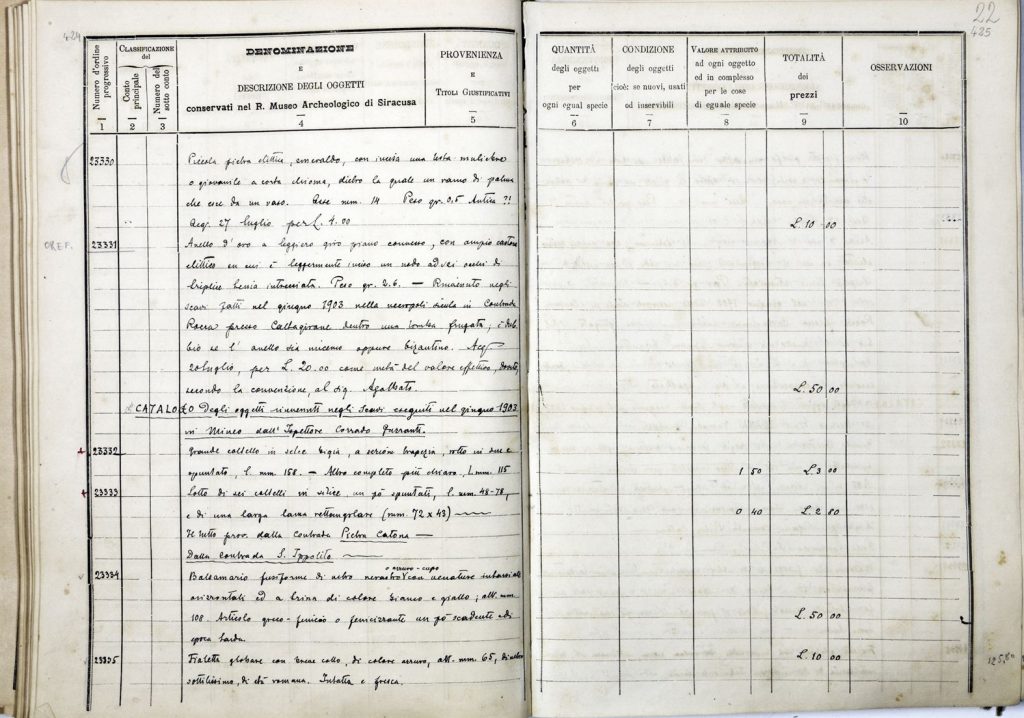 424
22
425
Numero d'ordine progressivo
CLASSIFICAZIONE
del
Conto principale
Numero del sotto conto
DENOMINAZIONE
E
DESCRIZIONE DEGLI OGGETTI
conservati nel R. Museo Archeologico di Siracusa
PROVENIENZA
E
TITOLI GIUSTIFICATIVI
1 2 3 4 5
QUANTITÀ
degli oggetti
per
ogni egual specie
6
CONDIZIONE
degli oggetti
cioè: se nuovi, usati
od inservibili
7
VALORE ATTRIBUITO
ad ogni oggetto
ed in complesso
per le cose
di eguale specie
8
TOTALITÀ
dei
prezzi
9
OSSERVAZIONI
10
23330 Piccola pietra elittica, smeraldo, con incisa una testa muliebre
o giovanile a corta chioma, dietro la quale un ramo di palma
che esce da un vaso. Asse mm. 14 Peso gr. 0,5 Antica ?!
Acq. 27 luglio per L. 4.00 L. 10 00
OREF. 23331 Anello d'oro a leggiero giro piano convesso, con ampio castone
elittico su cui è leggermente inciso un nodo ad sei occhi di
triplice tenia intrecciata. Peso gr. 2.6. — Rinvenuto negli
scavi fatti nel giugno 1903 nella necropoli sicula in Contrada
Rocca presso Caltagirone dentro una tomba frugata; è dub
bio se l'anello sia miceneo oppure bizantino. Acq.
20 luglio, per L. 20.00 come metà del valore effettivo, dovuta
secondo la convenzione, al sig. L. 50 00
CATALOGO Degli oggetti rinvenuti negli Scavi eseguiti nel giugno 1903
in Mineo dall'Ispettore Corrado
23332 Grande coltello in selce bigia, a sezione trapezia, rotto in due e
spuntato, l. mm. 158. — Altro completo più chiaro, l. mm. 115 1 50 L. 3 00
23333 Lotto di sei coltelli in silice, un pò spuntati, l. mm. 48-78,
e di una larga lama rettangolare (mm. 72 x 43) — 0 40 L. 2 80
Il tutto prov. dalla contrada Pietra Catona —
Dalla Contrada S. Ippolito —
o azzurro-cupo
23334 Balsamario fusiforme di vetro nerastro con venature
orizzontali ed a trina di colore bianco e giallo; alt. mm.
108. Articolo greco-fenicio o fenicizzante un pò scadente e di
epoca tarda. L. 50 00
23335 Fialetta globare con breve collo, di colore azzurro, alt. mm. 65, di vetro
sottilissimo, di età romana. Intatta e fresca. L. 10 00
125,80